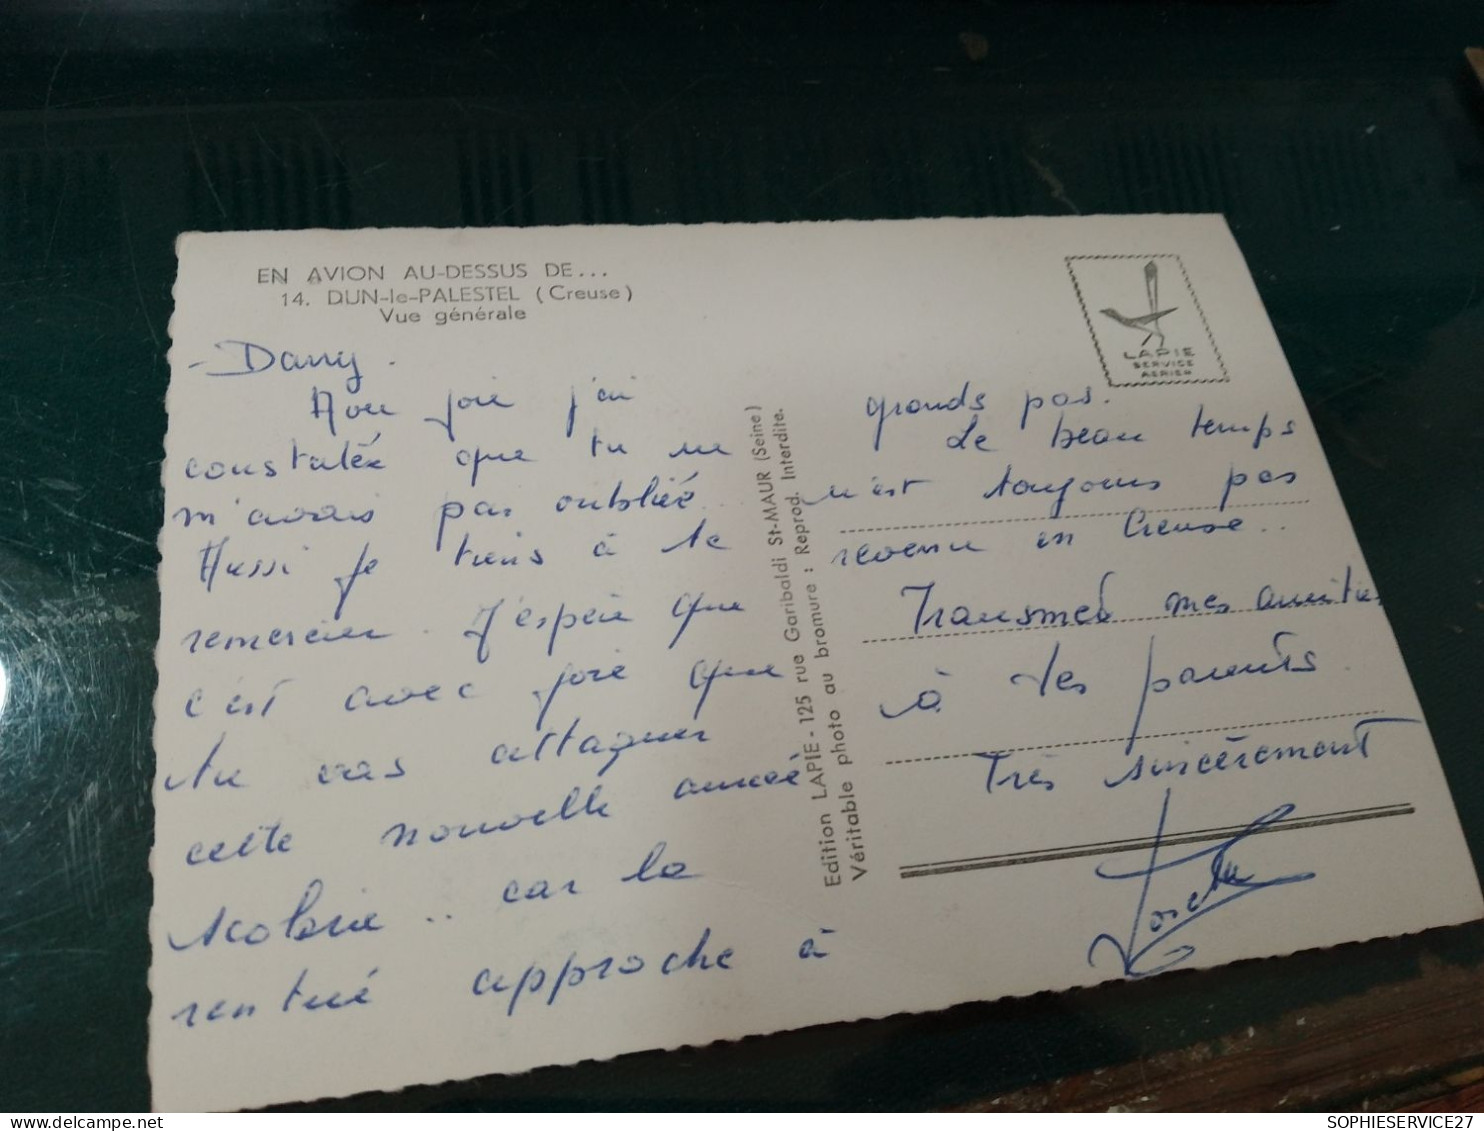 EN AVION AU-DESSUS DE...
14. DUN-le-PALESTEL (Creuse)
Vue générale
- Dany.
joie j'ai
constatée que tu ne
m'avais pas oubliée.
Aussi je tiens à te
remercier. J'espère que
c'est avec joie que
tu vas attaquer
cette nouvelle année
scolaire.. car la
rentrée approche à
grands pas.
Le beau temps
n'est toujours pas
revenu en Creuse..
Transmet mes amitiés
à tes parents.
Très sincèrement
Edition LAPIE - 125 rue Garibaldi St-MAUR (Seine)
Véritable photo au bromure : Reprod. Interdite.
LAPIE
SERVICE
AERIEN
SOPHIESERVICE27